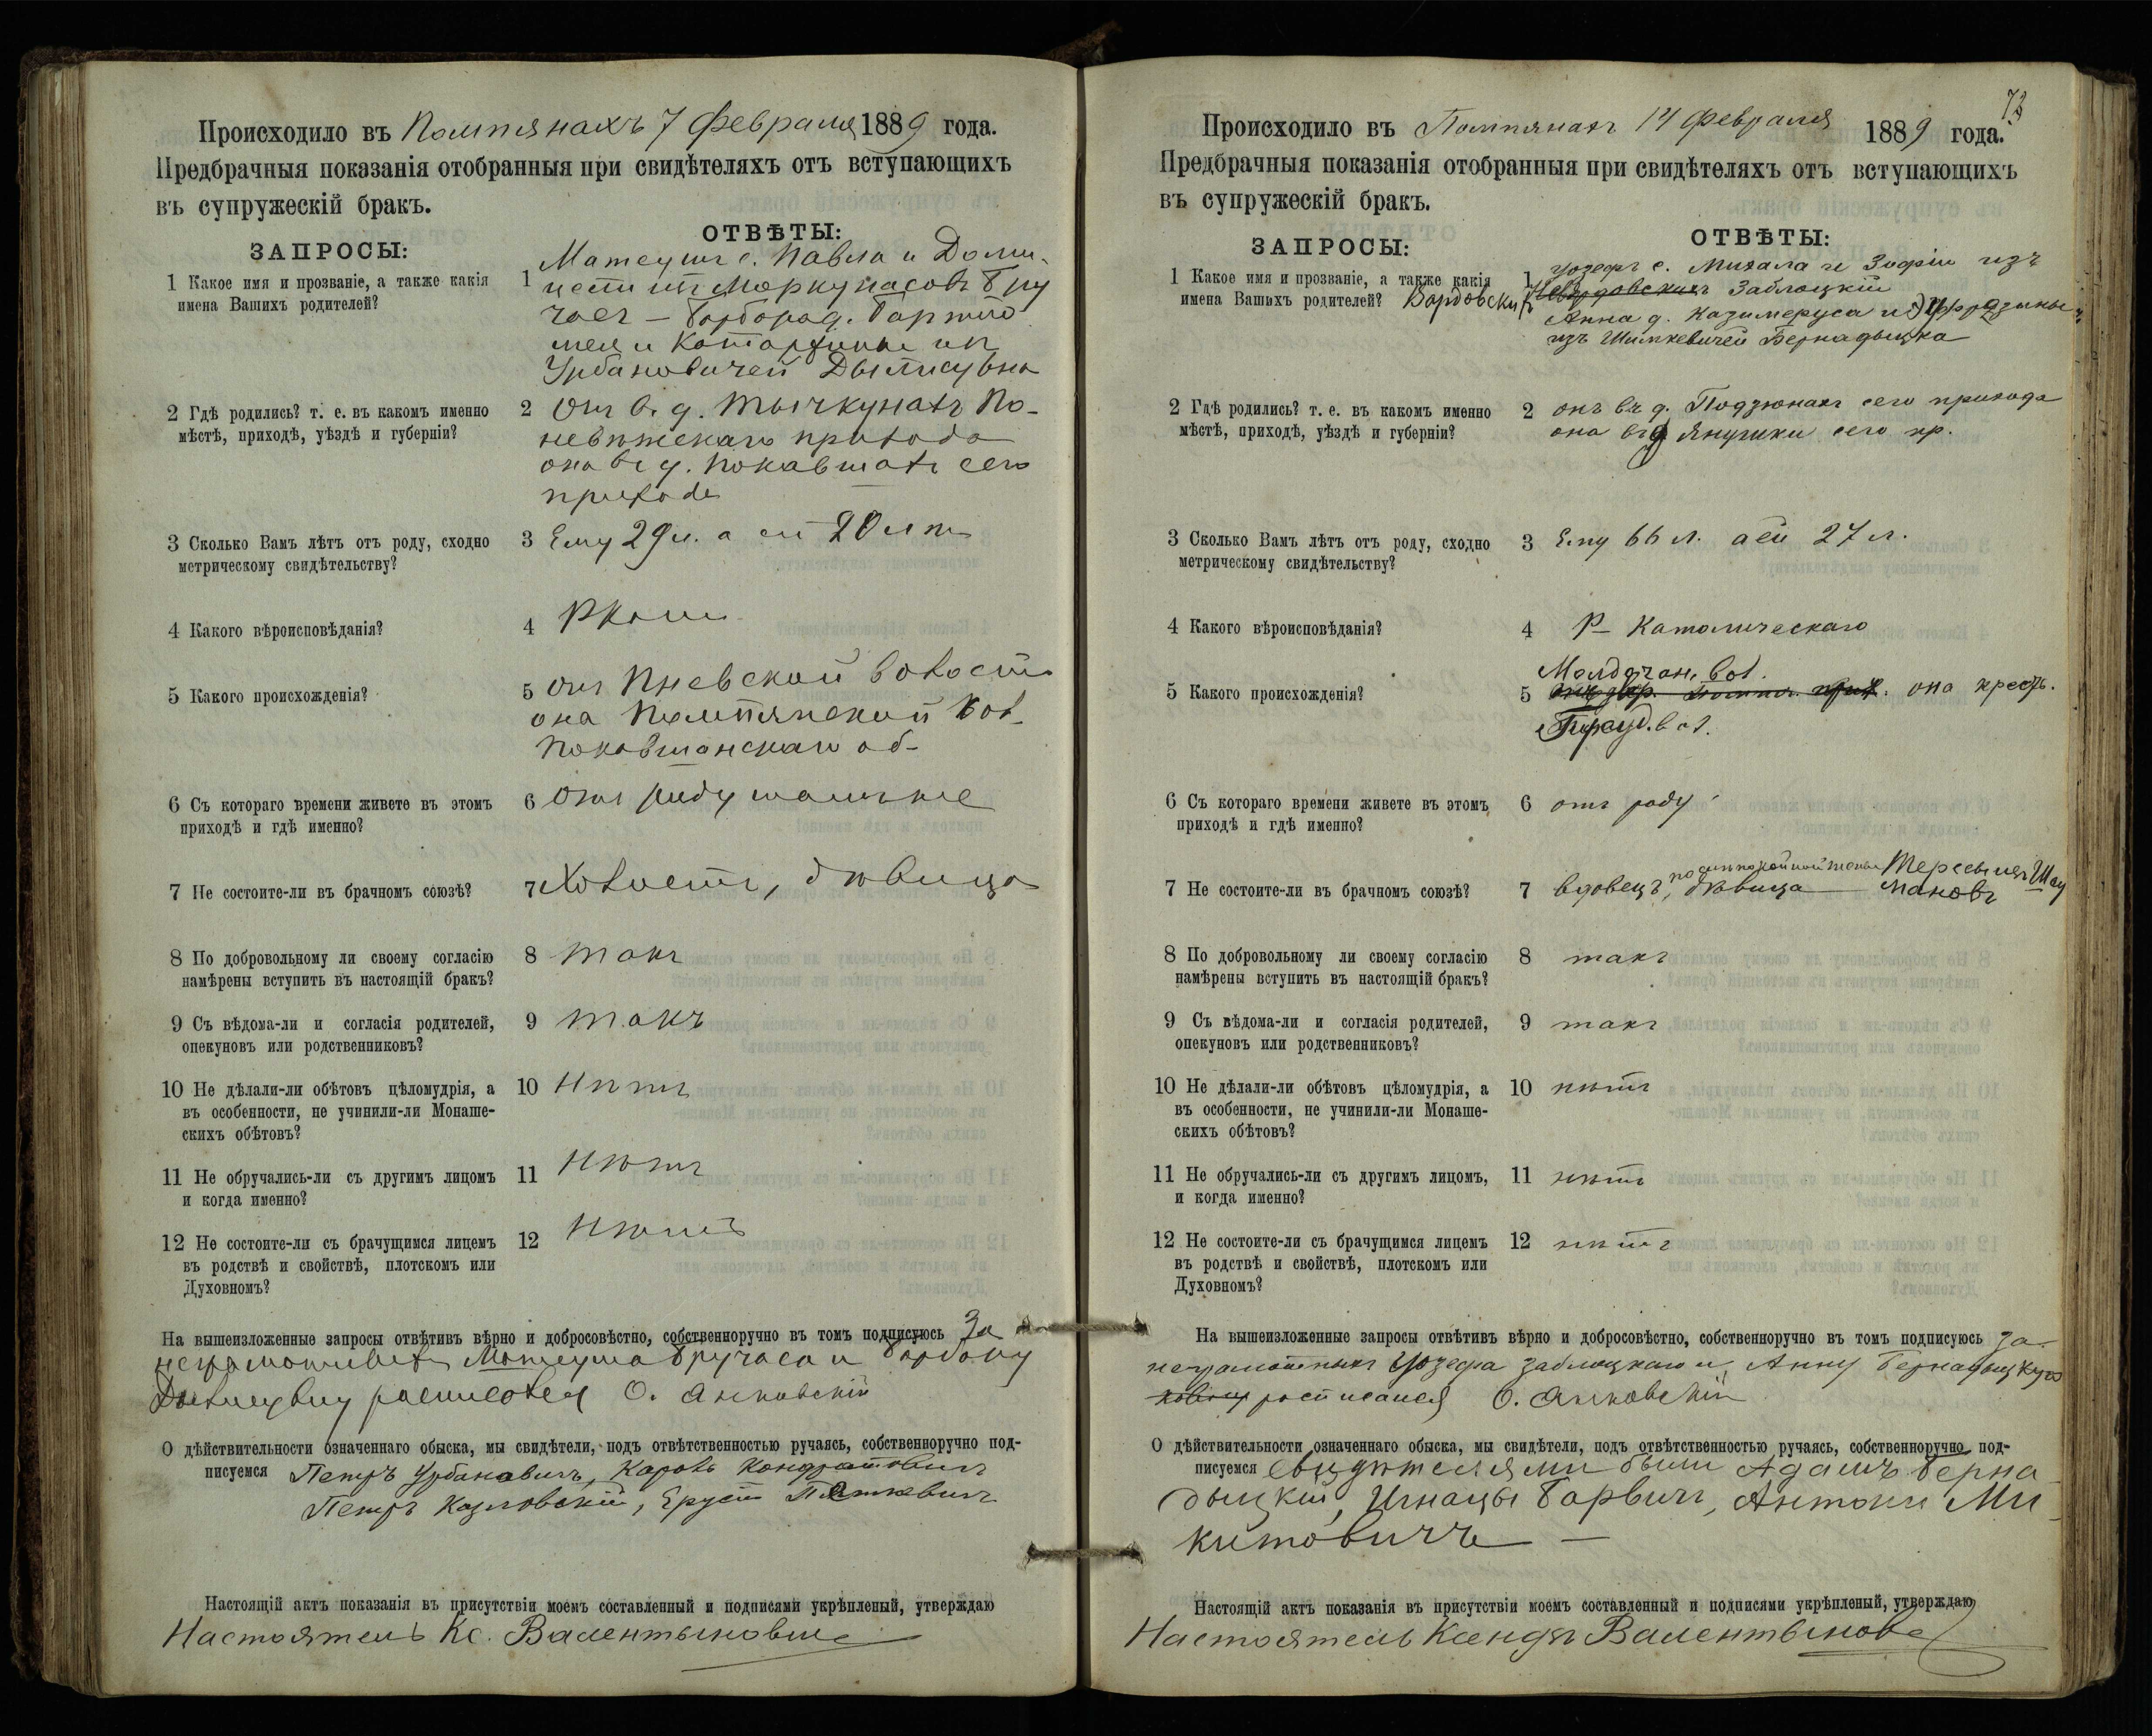 Происходило въ Помпянахъ 7 Февраля 1889 года.
Предбрачныя показанія отобранныя при свидѣтеляхъ отъ вступающихъ
въ супружескій бракъ.
ЗАПРОСЫ:
ОТВѢТЫ:
1 Какое имя и прозваніе, а также какія
имена Вашихъ родителей?
1 Матеушъ с. Павла и Доми-
Барбара д.
и
Урбановичей
2 Гдѣ родились? т. е. въ какомъ именно
мѣстѣ, приходѣ, уѣздѣ и губерніи?
2 Онъ въ д. По-
невѣжскаго прихода
она въ д. сего
прихода
3 Сколько Вамъ лѣтъ отъ роду, сходно
метрическому свидѣтельству?
3 Ему 29 л. а ей 20 лѣтъ
4 Какого вѣроисповѣданія?
4
5 Какого происхожденія?
5 Онъ волости
она Помпянской вол.
6 Съ котораго времени живете въ этомъ
приходѣ и гдѣ именно?
6 Отъ роду
7 Не состоите-ли въ брачномъ союзѣ?
7 Холостъ, дѣвица
8 По добровольному ли своему согласію
намѣрены вступить въ настоящій бракъ?
8 такъ
9 Съ вѣдома-ли и согласія родителей,
опекуновъ или родственниковъ?
9 такъ
10 Не дѣлали-ли обѣтовъ цѣломудрія, а
въ особенности, не учинили-ли Монаше-
скихъ обѣтовъ?
10 Нѣтъ
11 Не обручались-ли съ другимъ лицомъ
и когда именно?
11 Нѣтъ
12 Не состоите-ли съ брачущимся лицемъ
въ родствѣ и свойствѣ, плотскомъ или
Духовномъ?
12 Нѣтъ
На вышеизложенные запросы отвѣтивъ вѣрно и добросовѣстно, собственноручно въ томъ подписуюсь За
неграмотныхъ Матеуша и Барбару
О. Янковскій
О дѣйствительности означеннаго обыска, мы свидѣтели, подъ отвѣтственностью ручаясь, собственноручно под-
писуемся Петръ Урбановичъ, Кароль Кондратовичъ
Петръ Козловскій,
Настоящій актъ показанія въ присутствіи моемъ составленный и подписями укрѣпленый, утверждаю
Настоятель Кс. Валентыновичъ
73
Происходило въ Помпянахъ 14 Февраля 1889 года.
Предбрачныя показанія отобранныя при свидѣтеляхъ отъ вступающихъ
въ супружескій бракъ.
ЗАПРОСЫ:
ОТВѢТЫ:
1 Какое имя и прозваніе, а также какія
имена Вашихъ родителей?
1 Іозефъ с. Михала и Зофіи изъ
Заблоцкій
Анна д. Казимеруса и
изъ Шимкевичей Бернадыцка
2 Гдѣ родились? т. е. въ какомъ именно
мѣстѣ, приходѣ, уѣздѣ и губерніи?
2 онъ въ д. Подзюнахъ сего прихода
она въ д. сего пр.
3 Сколько Вамъ лѣтъ отъ роду, сходно
метрическому свидѣтельству?
3 Ему 66 л. а ей 27 л.
4 Какого вѣроисповѣданія?
4 Р-Католическаго
5 Какого происхожденія?
вол.
5 она крест.
вол.
6 Съ котораго времени живете въ этомъ
приходѣ и гдѣ именно?
6 отъ роду
7 Не состоите-ли въ брачномъ союзѣ?
7 вдовецъ, дѣвица
8 По добровольному ли своему согласію
намѣрены вступить въ настоящій бракъ?
8 такъ
9 Съ вѣдома-ли и согласія родителей,
опекуновъ или родственниковъ?
9 такъ
10 Не дѣлали-ли обѣтовъ цѣломудрія, а
въ особенности, не учинили-ли Монаше-
скихъ обѣтовъ?
10 нѣтъ
11 Не обручались-ли съ другимъ лицомъ,
и когда именно?
11 нѣтъ
12 Не состоите-ли съ брачущимся лицемъ
въ родствѣ и свойствѣ, плотскомъ или
Духовномъ?
12 нѣтъ
На вышеизложенные запросы отвѣтивъ вѣрно и добросовѣстно, собственноручно въ томъ подписуюсь за
неграмотныхъ Іозефа Заблоцкаго и Анну Бернадыцкую
росписался О. Янковскій
О дѣйствительности означеннаго обыска, мы свидѣтели, подъ отвѣтственностью ручаясь, собственноручно под-
писуемся свидѣтелями были Адамъ Берна-
дыцкій, Игнацы Барвичъ, Антони Ми-
китовичъ
Настоящій актъ показанія въ присутствіи моемъ составленный и подписями укрѣпленый, утверждаю
Настоятель Ксендзъ Валентынович